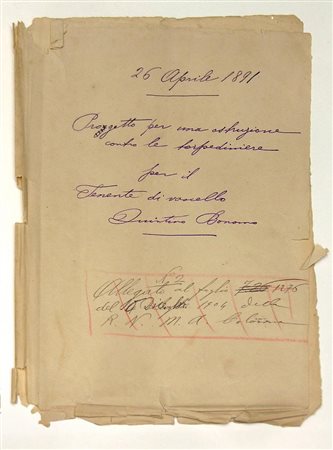 26 Aprile 1891
Progetto per una ostruzione
contro le torpediniere
per il
Tenente di vascello
Quintino Bonomo
Allegato al foglio 1276
del 1904 della
R. N. M. A.